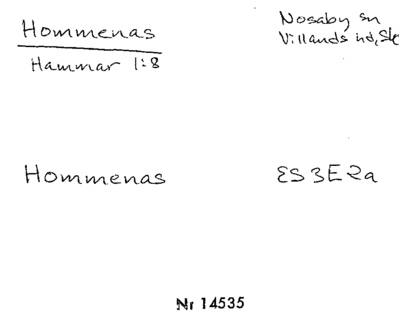 Hommenas
Nosaby sn
Villands hd, Sk
Hammar 1:8
Hommenas
ES 3E2a
Nr 14535